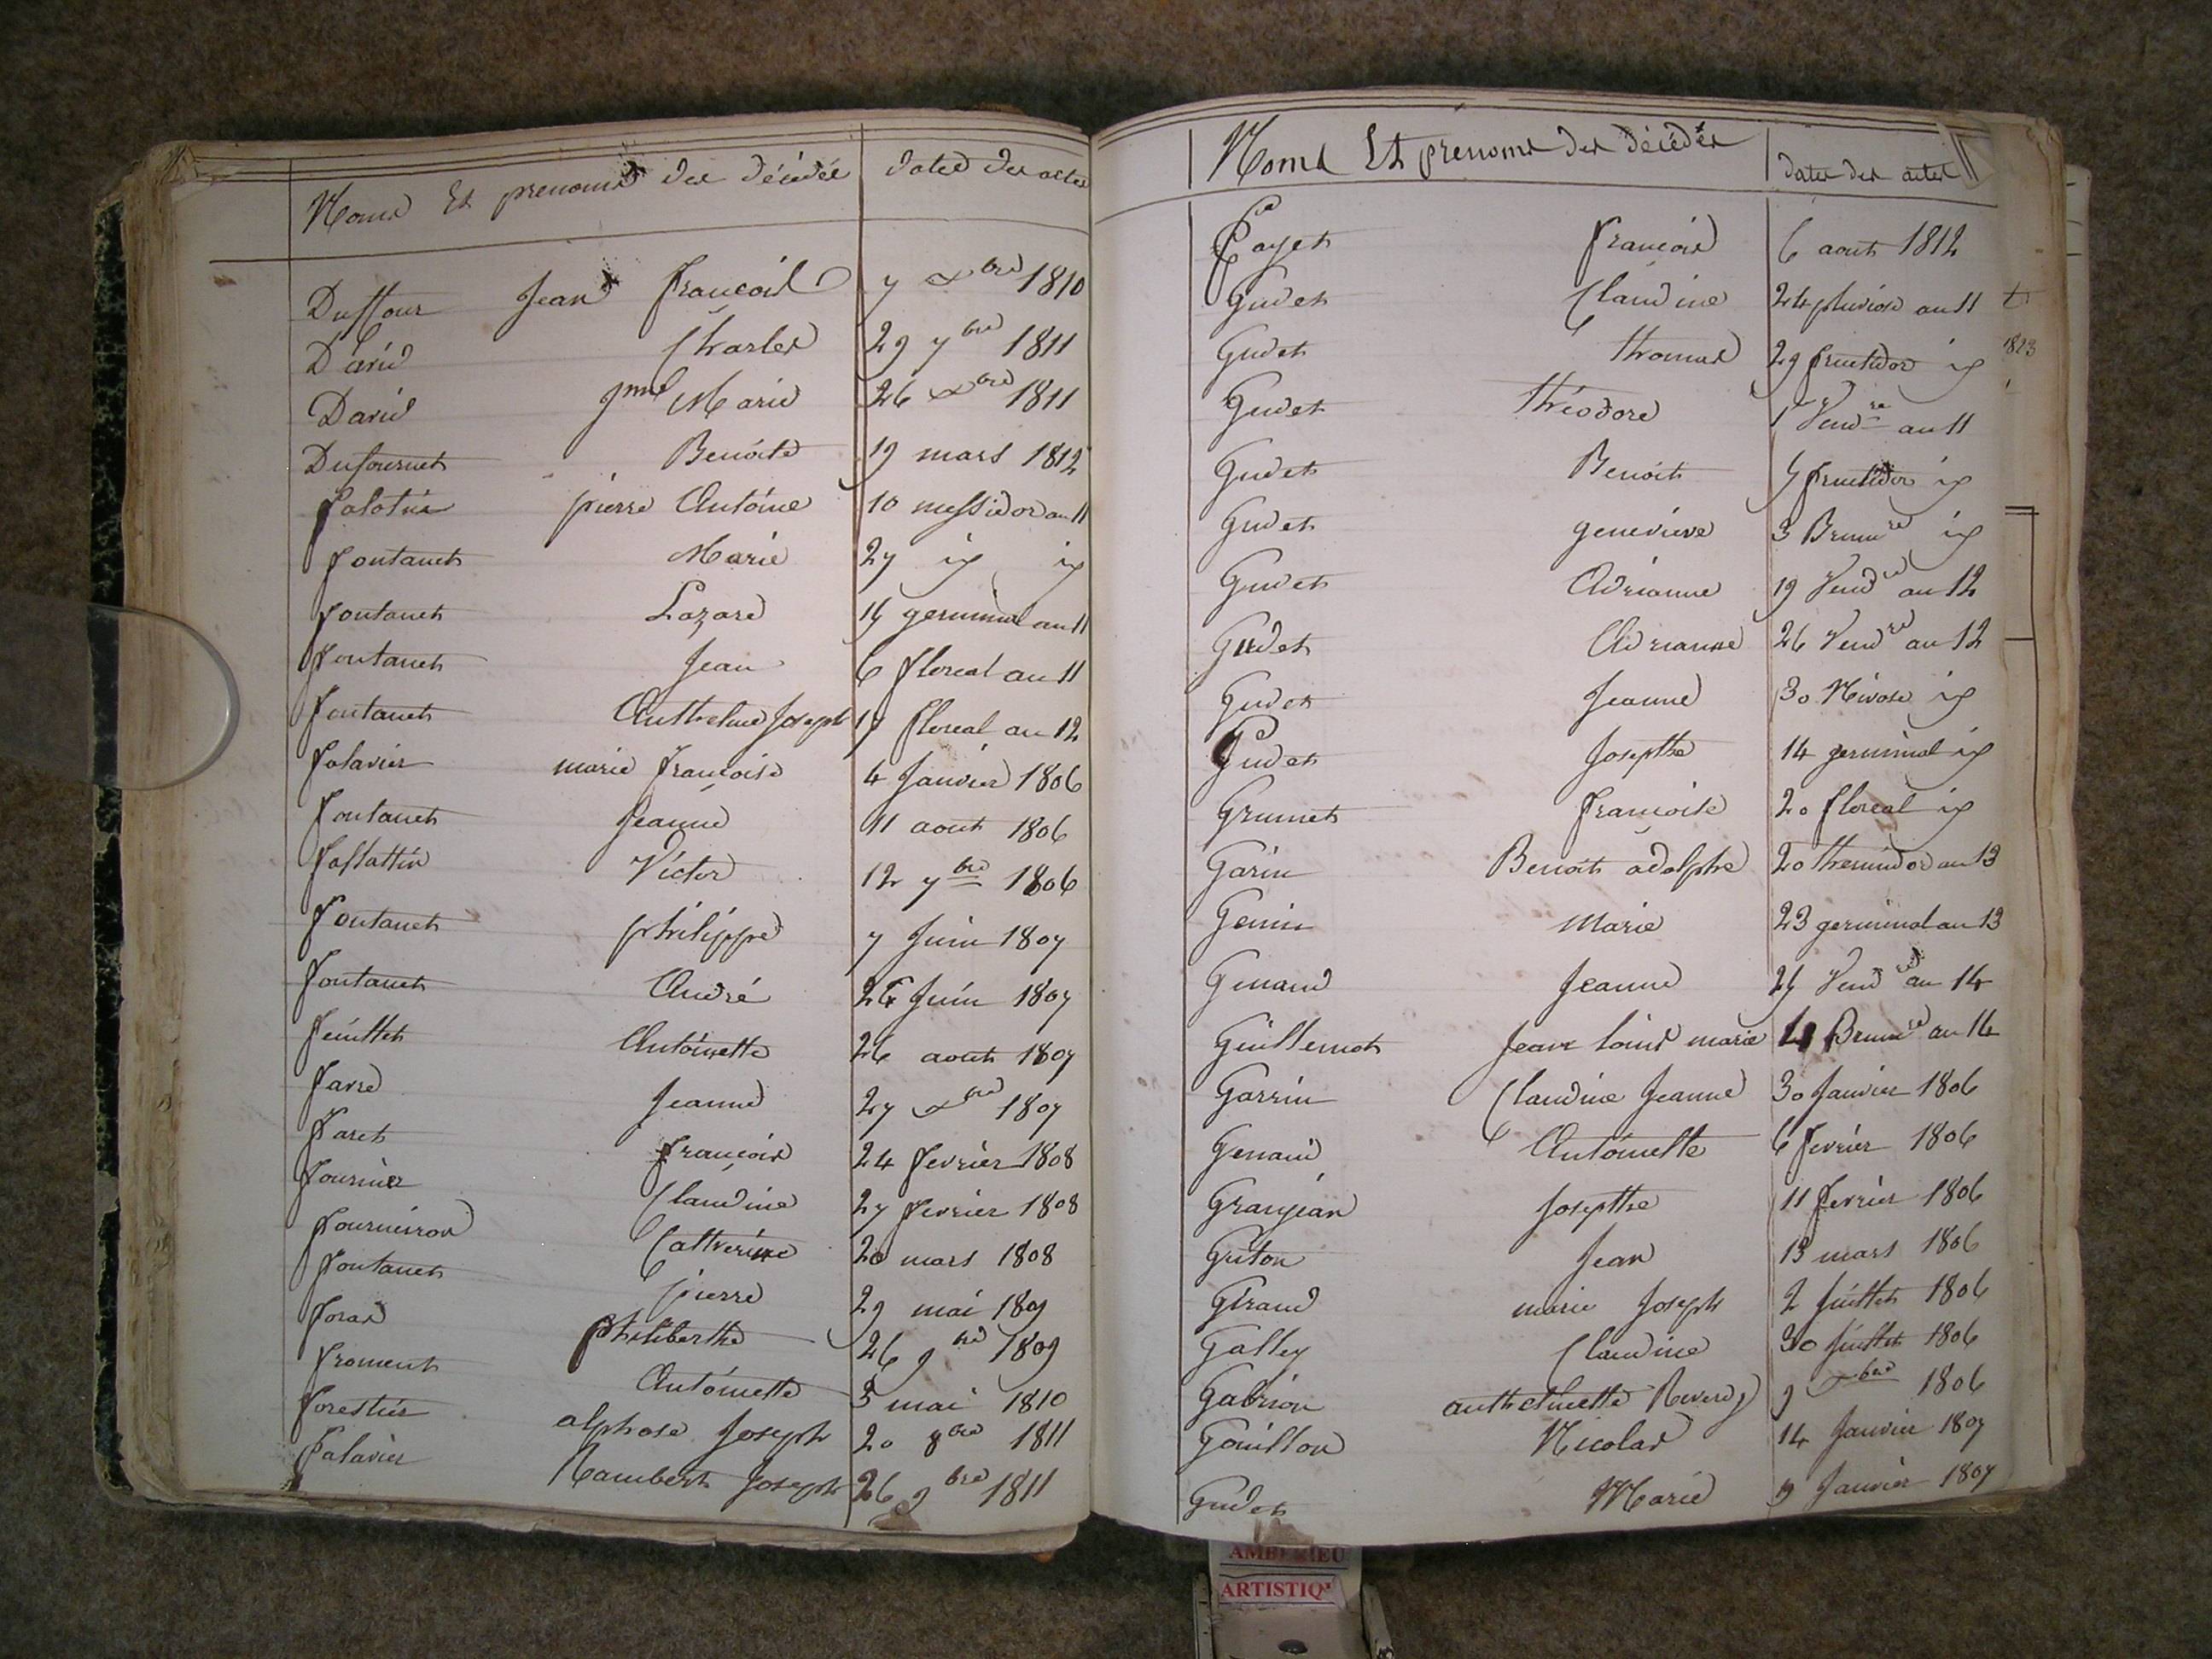 Noms Et prenoms des décédés dates des actes
Duffour Jean François 7 xbre 1810
David Charles 29 7bre 1811
David jne Marie 26 xbre 1811
Dufournet Benoite 19 mars 1812
falotin pierre Antoine 10 messidor an 11
fontanet Marie 27 id id
fontanet Lazare 14 germinal an 11
fontanet Jean 6 floreal an 11
fontanet Anthelme Joseph 17 floreal an 12
falavier marie françoise 4 Janvier 1806
fontanet Jeanne 11 aout 1806
faslattin Victor 12 7bre 1806
fontanet philippe 7 Juin 1807
fontanet André 24 Juin 1807
feuillet Antoinette 26 aout 1807
favre Jeanne 27 xbre 1807
faret françois 24 fevrier 1808
fournier Claudine 27 fevrier 1808
fourneiron Catherine 20 mars 1808
fontanet pierre 29 mai 1809
foras philiberthe 26 9bre 1809
froment Antoinette 3 mai 1810
forestier alphose Joseph 20 8bre 1811
falavier Rambert Joseph 26 9bre 1811
Noms Et prenoms des décédés dates des actes
Payet françois 6 aout 1812
Gudet Claudine 24 pluviose an 11
Gudet thomas 29 fructidor id
1823
Gudet théodore 1 Vendre an 11
Gudet Benoit 4 fructidor id
Gudet genevieve 3 Brumre id
Gudet Adrianne 19 Vendre an 12
Gudet Adrianne 26 Vendre an 12
Gudet Jeanne 30 Nivose id
Gudet Josepthe 14 germinal id
Grumet françoise 20 floreal id
Garin Benoit adolphe 20 thermidor an 13
Genin Marie 23 germinal an 13
Genaud Jeanne 24 Vendre an 14
Guillemot Jean louis marie Brumre an 14
Garrin Claudine Jeanne 30 Janvier 1806
Genaud Antoinette 6 fevrier 1806
Granjean Josepthe 11 fevrier 1806
Guton Jean 13 mars 1806
Giraud marie Joseph 2 Juillet 1806
Galley Claudine 30 Juillet 1806
Gabrion anthelmette Reverdy 9 xbre 1806
Gouillon Nicolas 14 Janvier 1807
Gudet Marie 19 Janvier 1807
AMBERIEU
ARTISTIQ